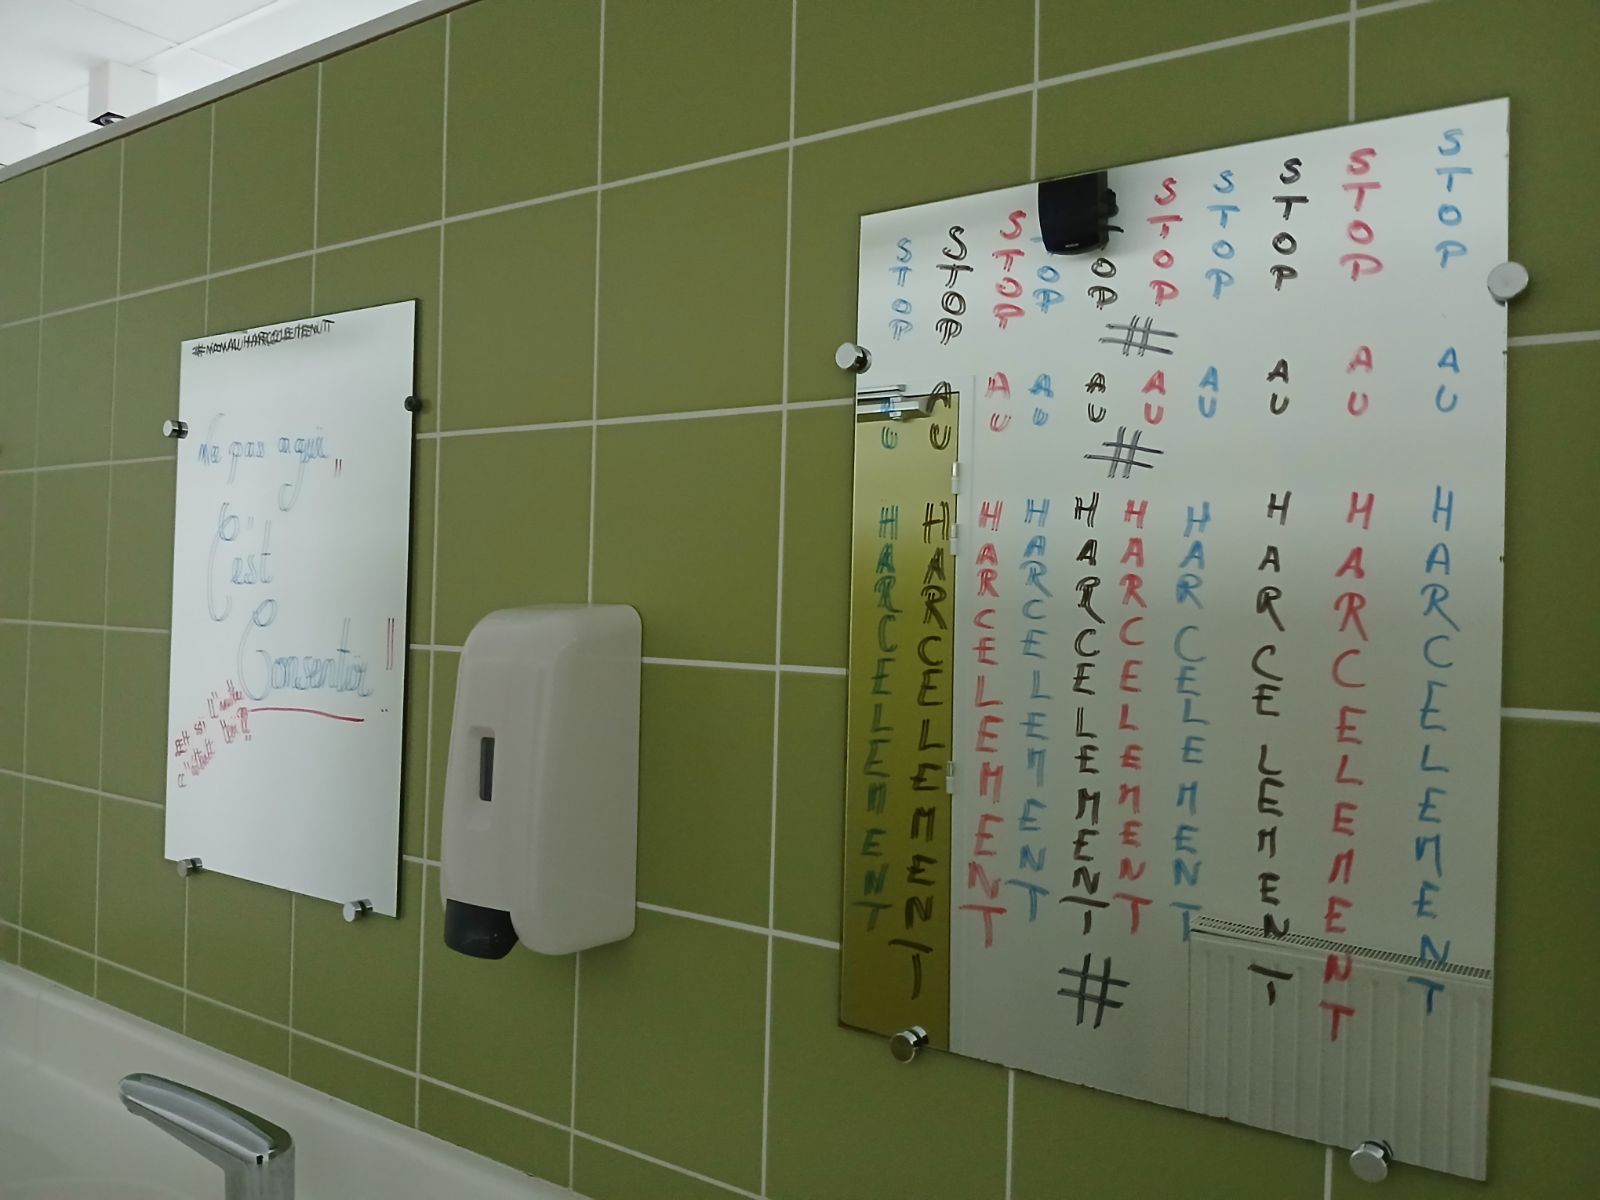 #NONAUHARCELEMENT
Ne pas agir
"
C'est
Consentir
"
Et si l'autre
c'était toi ?
STOP AU HARCELEMENT
STOP AU HARCELEMENT
STOP AU HARCELEMENT
STOP AU HARCELEMENT
STOP AU HARCELEMENT
STOP AU HARCELEMENT
STOP AU HARCELEMENT
STOP AU HARCELEMENT
STOP AU HARCELEMENT
STOP AU HARCELEMENT
#
#
#